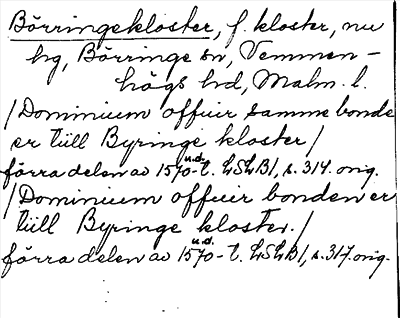 Börringekloster, f. kloster, nu
hg, Börringe sn, Vemmen-
högs hd, Malm. l.
/Dominium offuir samme bonde
er till Byringe kloster/
förra delen av 1570-t. LSLB1, s. 314. orig.
u.d.
/Dominium offuir bonden er
till Byringe kloster./
förra delen av 1570-t. LSLB1, s. 317. orig.
u.d.